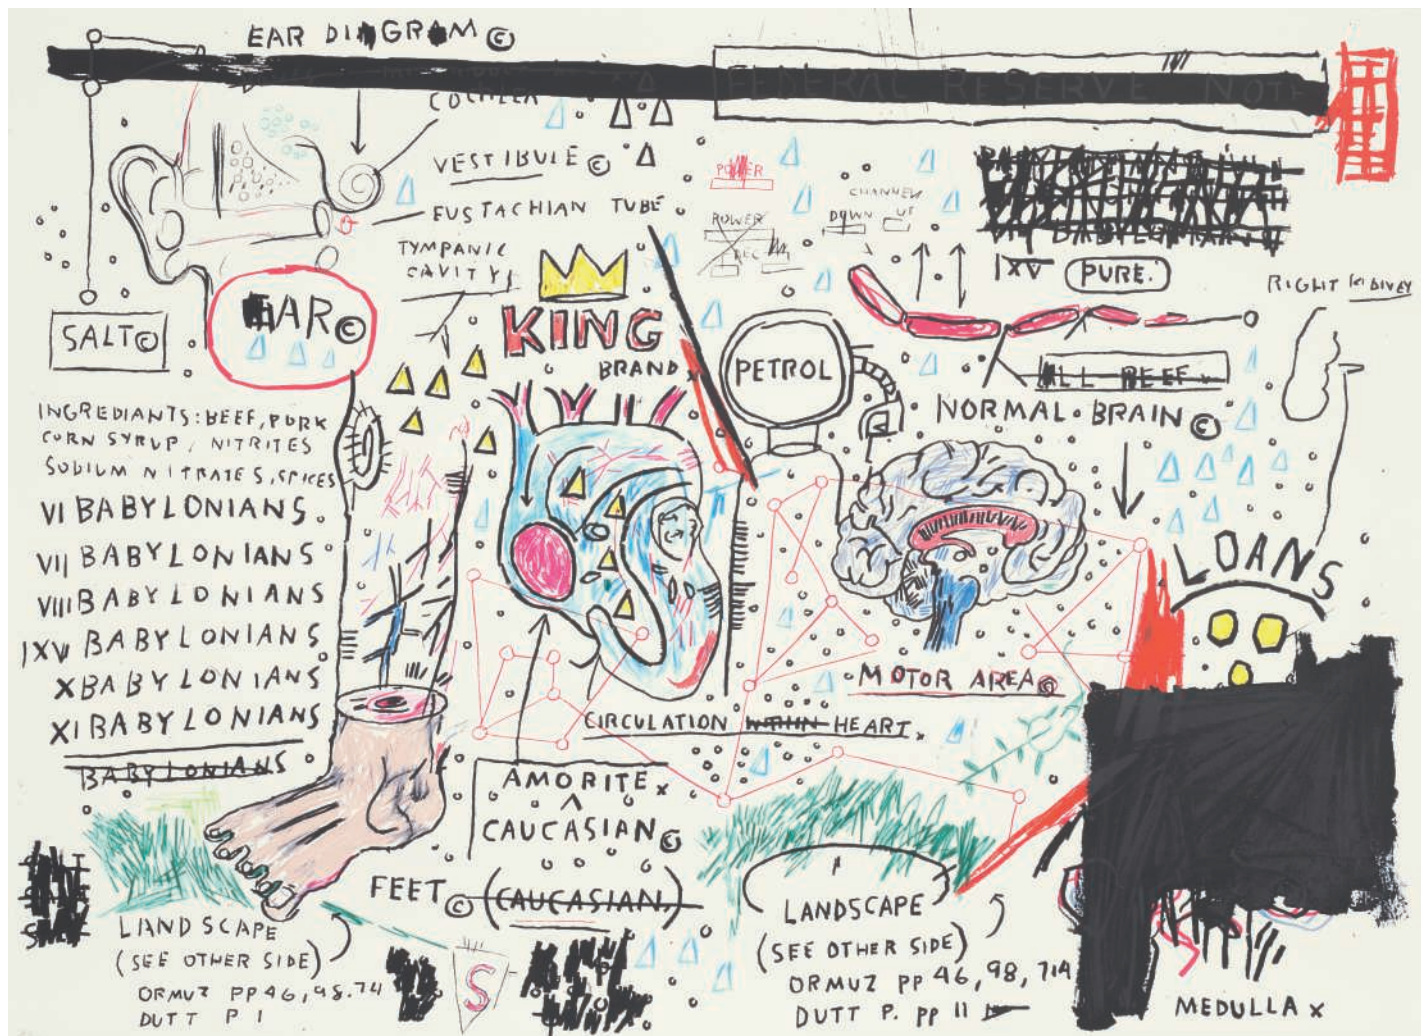 EAR DIAGRAM ©
FEDERAL RESERVE NOTE
COCHLEA
VESTIBULE ©
EUSTACHIAN TUBE
TYMPANIC
CAVITY
POWER
CHANNEL
POWER
DOWN UP
REC
BABYLONIANS
IXV PURE.
RIGHT KIDNEY
SALT ©
EAR ©
KING
BRAND x
PETROL
ALL BEEF
NORMAL BRAIN ©
INGREDIANTS: BEEF, PORK
CORN SYRUP, NITRITES
SODIUM NITRATES, SPICES
VI BABYLONIANS
VII BABYLONIANS
VIII BABYLONIANS
IXV BABYLONIANS
X BABYLONIANS
XI BABYLONIANS
BABYLONIANS
LOANS
MOTOR AREA ©
CIRCULATION WITHIN HEART x
AMORITE x
CAUCASIAN ©
FEET © (CAUCASIAN.)
LANDSCAPE
(SEE OTHER SIDE)
ORMUZ PP 46, 98. 74
DUTT P 1
S
LANDSCAPE
(SEE OTHER SIDE)
ORMUZ PP 46, 98, 714
DUTT P. PP 11
MEDULLA x